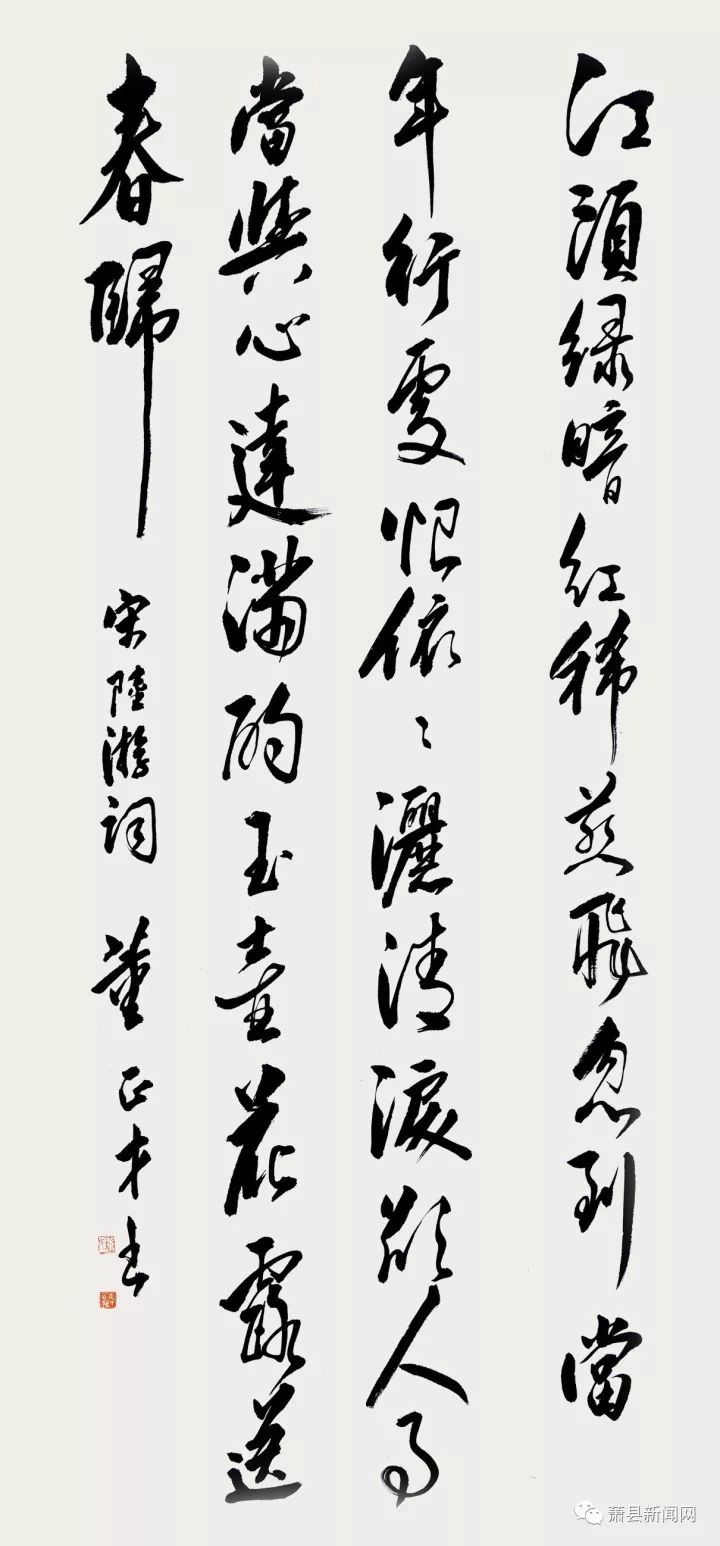 江頭绿暗红稀燕飛忽到當
年行處恨依々灑清淚歎人事
當與心違滿酌玉壺花露送
春歸 宋陸游詞 董正才書
萧县新闻网